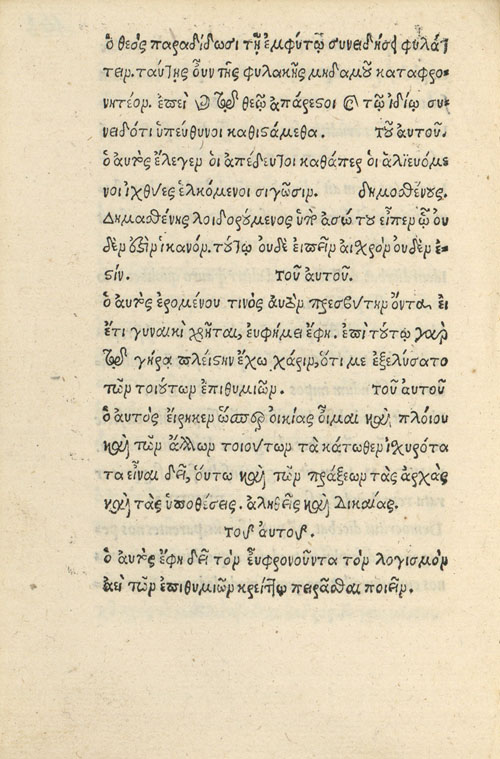 ὁ θεὸς παραδίδωσι τῇ ἐμφύτῳ συνειδήσει φυλάτ
τειν. ταύτης οὖν τῆς φυλακῆς μηδαμοῦ καταφρο-
νητέον. ἐπεὶ τῷ θεῷ ἀπάρεστοι τῷ ἰδίῳ συ-
νειδότι ὑπεύθυνοι καθιστάμεθα. τοῦ αὐτοῦ.
ὁ αὐτὸς ἔλεγεν οἱ ἀπέδευτοι καθάπερ οἱ ἁλιευόμε
νοι ἰχθύες ἑλκόμενοι σιγῶσιν. δημοσθένους.
Δημοσθένης λοιδορούμενος ὑπὸ ἀσώτου εἶπεν ᾧ οὐ
δὲν ἱκανόν. τούτῳ οὐδὲ εἰπεῖν αἰχρὸν οὐδὲν ἐ-
στίν. τοῦ αὐτοῦ.
ὁ αὐτὸς ἐρομένου τινὸς αὐτὸν πρεσβύτην ὄντα εἰ
ἔτι γυναικὶ χρῆται, εὐφήμει ἔφη. ἐπὶ τούτῳ γὰρ
τῷ γήρᾳ πλείστην ἔχω χάριν, ὅτι με ἐξελύσατο
τῶν τοιούτων ἐπιθυμιῶν. τοῦ αὐτοῦ
ὁ αὐτὸς εἴρηκεν ὥσπερ οἰκίας οἶμαι καὶ πλοίου
καὶ τῶν ἄλλων τοιούτων τὰ κάτωθεν ἰχυρότα
τα εἶναι δεῖ, οὕτω καὶ τῶν πράξεων τὰς ἀρχὰς
καὶ τὰς ὑποθέσεις. ἀληθεῖς καὶ Δικαίας.
τοῦ αὐτοῦ.
ὁ αὐτὸς ἔφη δεῖ τὸν εὐφρονοῦντα τὸν λογισμὸν
ἀεὶ τῶν ἐπιθυμιῶν κρείττω πειρᾶσθαι ποιεῖν.